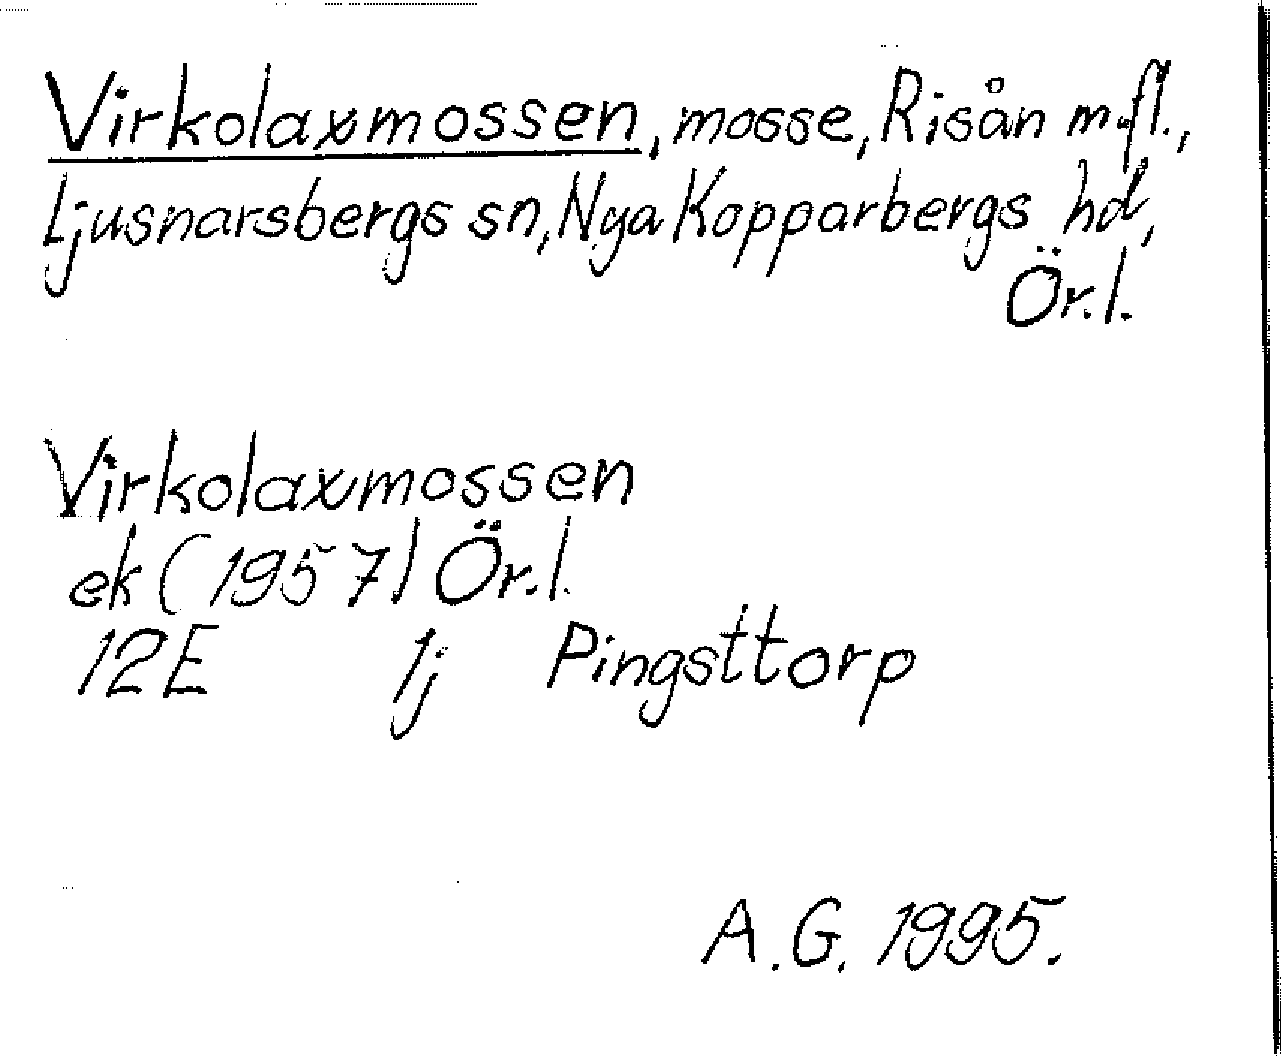 Virkolaxmossen, mosse, Risån m.fl.,
Ljusnarsbergs sn, Nya Kopparbergs hd,
Ör.l.
Virkolaxmossen
ek (1957) Ör.l.
12E 1j Pingsttorp
A.G. 1995.